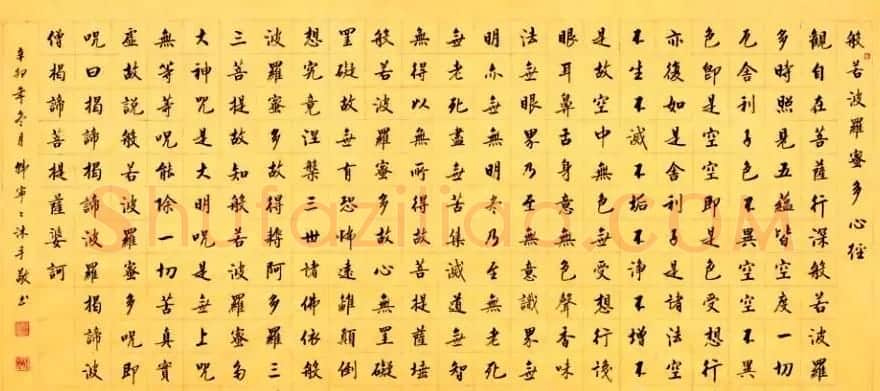 般若波羅蜜多心經
觀自在菩薩行深般若波羅
多時照見五蘊皆空度一切
厄舍利子色不異空空不異
色即是空空即是色受想行
亦復如是舍利子是諸法空
不生不滅不垢不淨不增不
是故空中無色無受想行識
眼耳鼻舌身意無色聲香味
法無眼界乃至無意識界無
明亦無無明盡乃至無老死
無老死盡無苦集滅道無智
無得以無所得故菩提薩埵
般若波羅蜜多故心無罣礙
罣礙故無有恐怖遠離顛倒
想究竟涅槃三世諸佛依般
波羅蜜多故得耨阿多羅三
三菩提故知般若波羅蜜多
大神咒是大明咒是無上咒
無等等咒能除一切苦真實
虛故說般若波羅蜜多咒即
咒曰揭諦揭諦波羅揭諦波
僧揭諦菩提薩婆訶
辛卯年冬月韓寧〻沐手敬书
Shufaziliao.COM